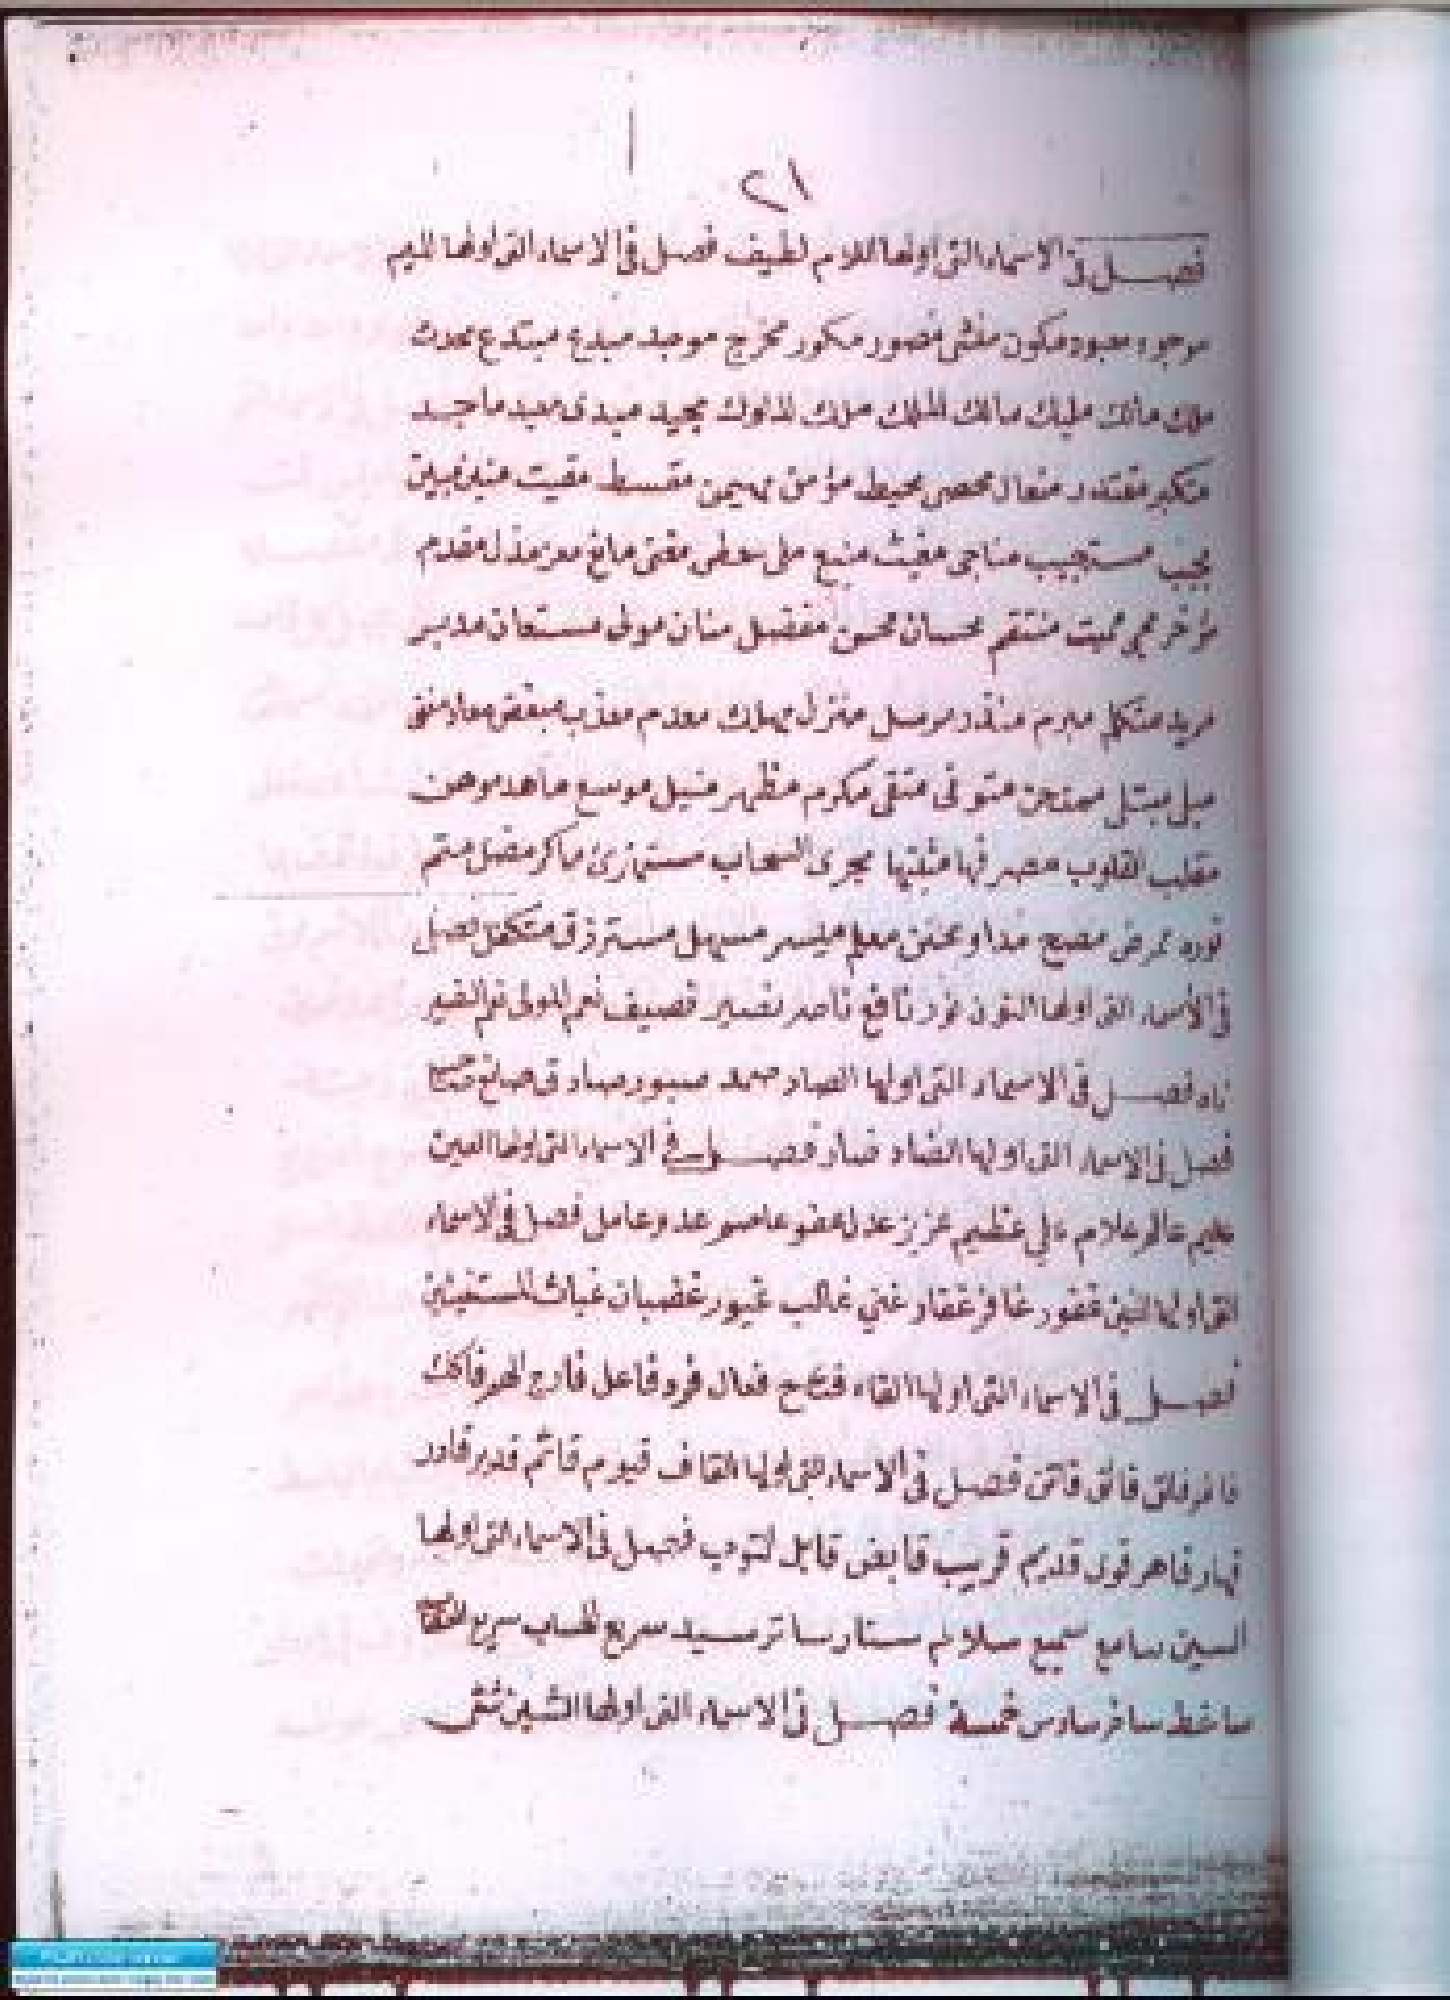 ٢١
فصل في الاسماء التي اولها اللام لطيف فصل في الاسماء التي اولها الميم
موجود معبود مكون منشى مصور مكور مخرج موجد مبدع مبتدع محدث
ملك مالك مليك مالك الملك ملك الملوك مجيد مبدى معيد ماجد
متكبر مقتدر متعال محصى محيط مؤمن مهيمن مقسط مقيت متين مبين
مجيب مستجيب مناجى مغيث منيع ملى معطى مغنى مانع معز مذل مقدم
مؤخر محي مميت منتقم محسان محسن مفضل منان مولى مستعان مدبر
مريد متكلم مبرم منذر مرسل منزل مهلك معدم معذب مبغض
مبلى مبتلى ممتحن متوفى مكرم مظهر منيل موسع ماهد موهن
مقلب القلوب مجرى السحاب مستهزئ ماكر مضل متم
نوره ممرض مصح مداو معلم ميسر مسهل مسترزق متكفل فصل
في الأسماء التي اولها النون نور نافع ناصر نصير نعم المولى نعم النصير
ناه فصل في الاسماء التي اولها الصاد صمد صبور صادق صانع
فصل في الاسماء التي اولها الضاد ضار فصل في الاسماء التي اولها العين
عليم عالم علام على عظيم عزيز عدل عفو عاصم عدو عامل فصل في الاسماء
التي اولها الغين غفور غافر غفار غني غالب غيور غضبان غياث المستغيثين
فصل في الاسماء التي اولها الفاء فتاح فعال فرد فاعل فارج الهم
فالق فاتق فصل في الاسماء التي اولها القاف قيوم قائم قدير قادر
قهار قاهر قوى قديم قريب قابض قابل التوب فصل في الاسماء التي اولها
السين سامع سميع سلام ستار ساتر سيد سريع الحساب سريع العقاب
ساخط سادس خمسة فصل في الاسماء التي اولها الشين